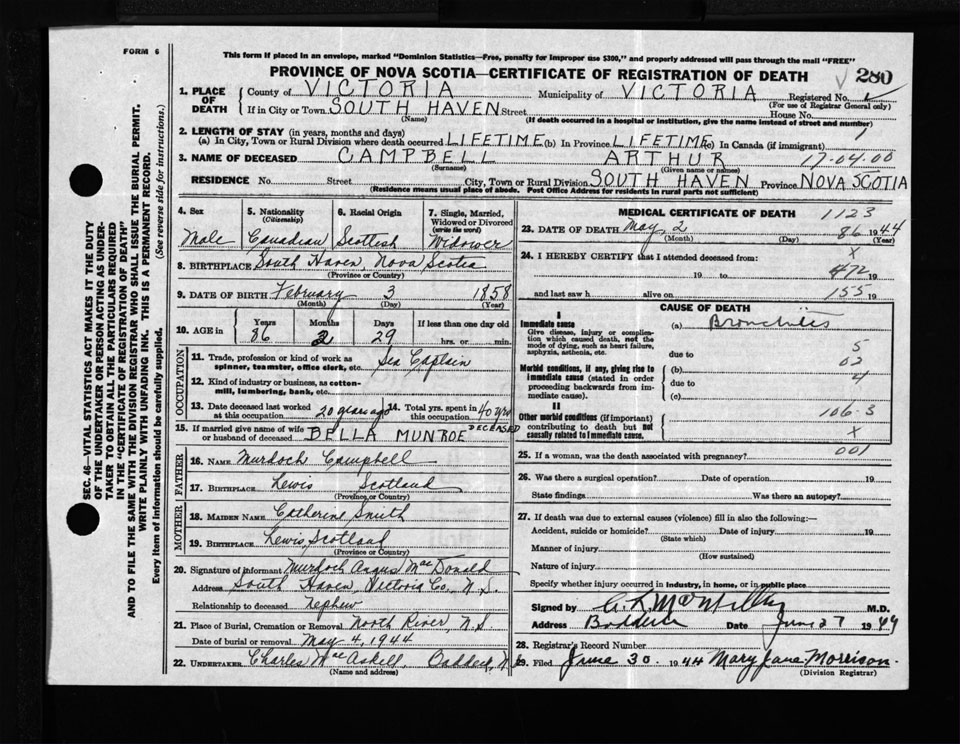 FORM 6
This form if placed in an envelope, marked "Dominion Statistics—Free, penalty for improper use $300," and properly addressed will pass through the mail "FREE"
PROVINCE OF NOVA SCOTIA—CERTIFICATE OF REGISTRATION OF DEATH 280
1. PLACE OF DEATH County of VICTORIA Municipality of VICTORIA Registered No.
(For use of Registrar General only)
If in City or Town SOUTH HAVEN Street House No.
(Name) (If death occurred in a hospital or institution, give the name instead of street and number)
2. LENGTH OF STAY (in years, months and days)
(a) In City, Town or Rural Division where death occurred LIFETIME (b) In Province LIFETIME (c) In Canada (if immigrant)
3. NAME OF DECEASED CAMPBELL ARTHUR 17-04-00
(Surname) (Given name or names)
RESIDENCE No. Street City, Town or Rural Division SOUTH HAVEN Province NOVA SCOTIA
(Residence means usual place of abode. Post Office Address for residents in rural parts not sufficient)
4. Sex 5. Nationality (Citizenship) 6. Racial Origin 7. Single, Married, Widowed or Divorced (write the word)
Male Canadian Scottish Widower
8. BIRTHPLACE South Haven, Nova Scotia
(Province or Country)
9. DATE OF BIRTH February 3 1858
(Month) (Day) (Year)
10. AGE in Years Months Days If less than one day old
86 2 29 hrs. or min.
OCCUPATION
11. Trade, profession or kind of work as spinner, teamster, office clerk, etc. Sea Captain
12. Kind of industry or business, as cotton-mill, lumbering, bank, etc.
13. Date deceased last worked at this occupation 20 years ago 14. Total yrs. spent in this occupation 40 yrs
15. If married give name of wife or husband of deceased BELLA MUNROE DECEASED
FATHER
16. NAME Murdoch Campbell
17. BIRTHPLACE Lewis Scotland
(Province or Country)
MOTHER
18. MAIDEN NAME Catherine Smith
19. BIRTHPLACE Lewis, Scotland
(Province or Country)
20. Signature of informant Murdoch Angus MacDonald
Address South Haven, Victoria Co., N.S.
Relationship to deceased nephew
21. Place of Burial, Cremation or Removal North River, N.S.
Date of burial or removal May 4, 1944
22. UNDERTAKER Charles MacAskill, Baddeck, N.S.
(Name and address)
MEDICAL CERTIFICATE OF DEATH 1123
23. DATE OF DEATH May 2 86 1944
(Month) (Day) (Year)
24. I HEREBY CERTIFY that I attended deceased from: x
19 to 472 19
and last saw h alive on 155 19
CAUSE OF DEATH
I
Immediate cause (a) Bronchitis
Give disease, injury or complication which caused death, not the mode of dying, such as heart failure, asphyxia, asthenia, etc. due to 5
Morbid conditions, if any, giving rise to immediate cause (stated in order proceeding backwards from immediate cause). (b) 02
due to 4
(c)
II
Other morbid conditions (if important) contributing to death but not causally related to immediate cause. 106-3
x
25. If a woman, was the death associated with pregnancy? 001
26. Was there a surgical operation? Date of operation 19
State findings Was there an autopsy?
27. If death was due to external causes (violence) fill in also the following:—
Accident, suicide or homicide? Date of injury 19
(State which)
Manner of injury
(How sustained)
Nature of injury
Specify whether injury occurred in industry, in home, or in public place
Signed by M.D.
Address Baddeck Date June 27 1944
28. Registrar's Record Number
29. Filed June 30. 1944 Mary Jane Morrison.
(Division Registrar)
SEC. 46—VITAL STATISTICS ACT MAKES IT THE DUTY
OF THE UNDERTAKER OR PERSON ACTING AS UNDER-
TAKER TO OBTAIN ALL THE PARTICULARS REQUIRED
IN THE "CERTIFICATE OF REGISTRATION OF DEATH"
AND TO FILE THE SAME WITH THE DIVISION REGISTRAR WHO SHALL ISSUE THE BURIAL PERMIT.
WRITE PLAINLY WITH UNFADING INK. THIS IS A PERMANENT RECORD.
Every item of information should be carefully supplied. (See reverse side for instructions.)